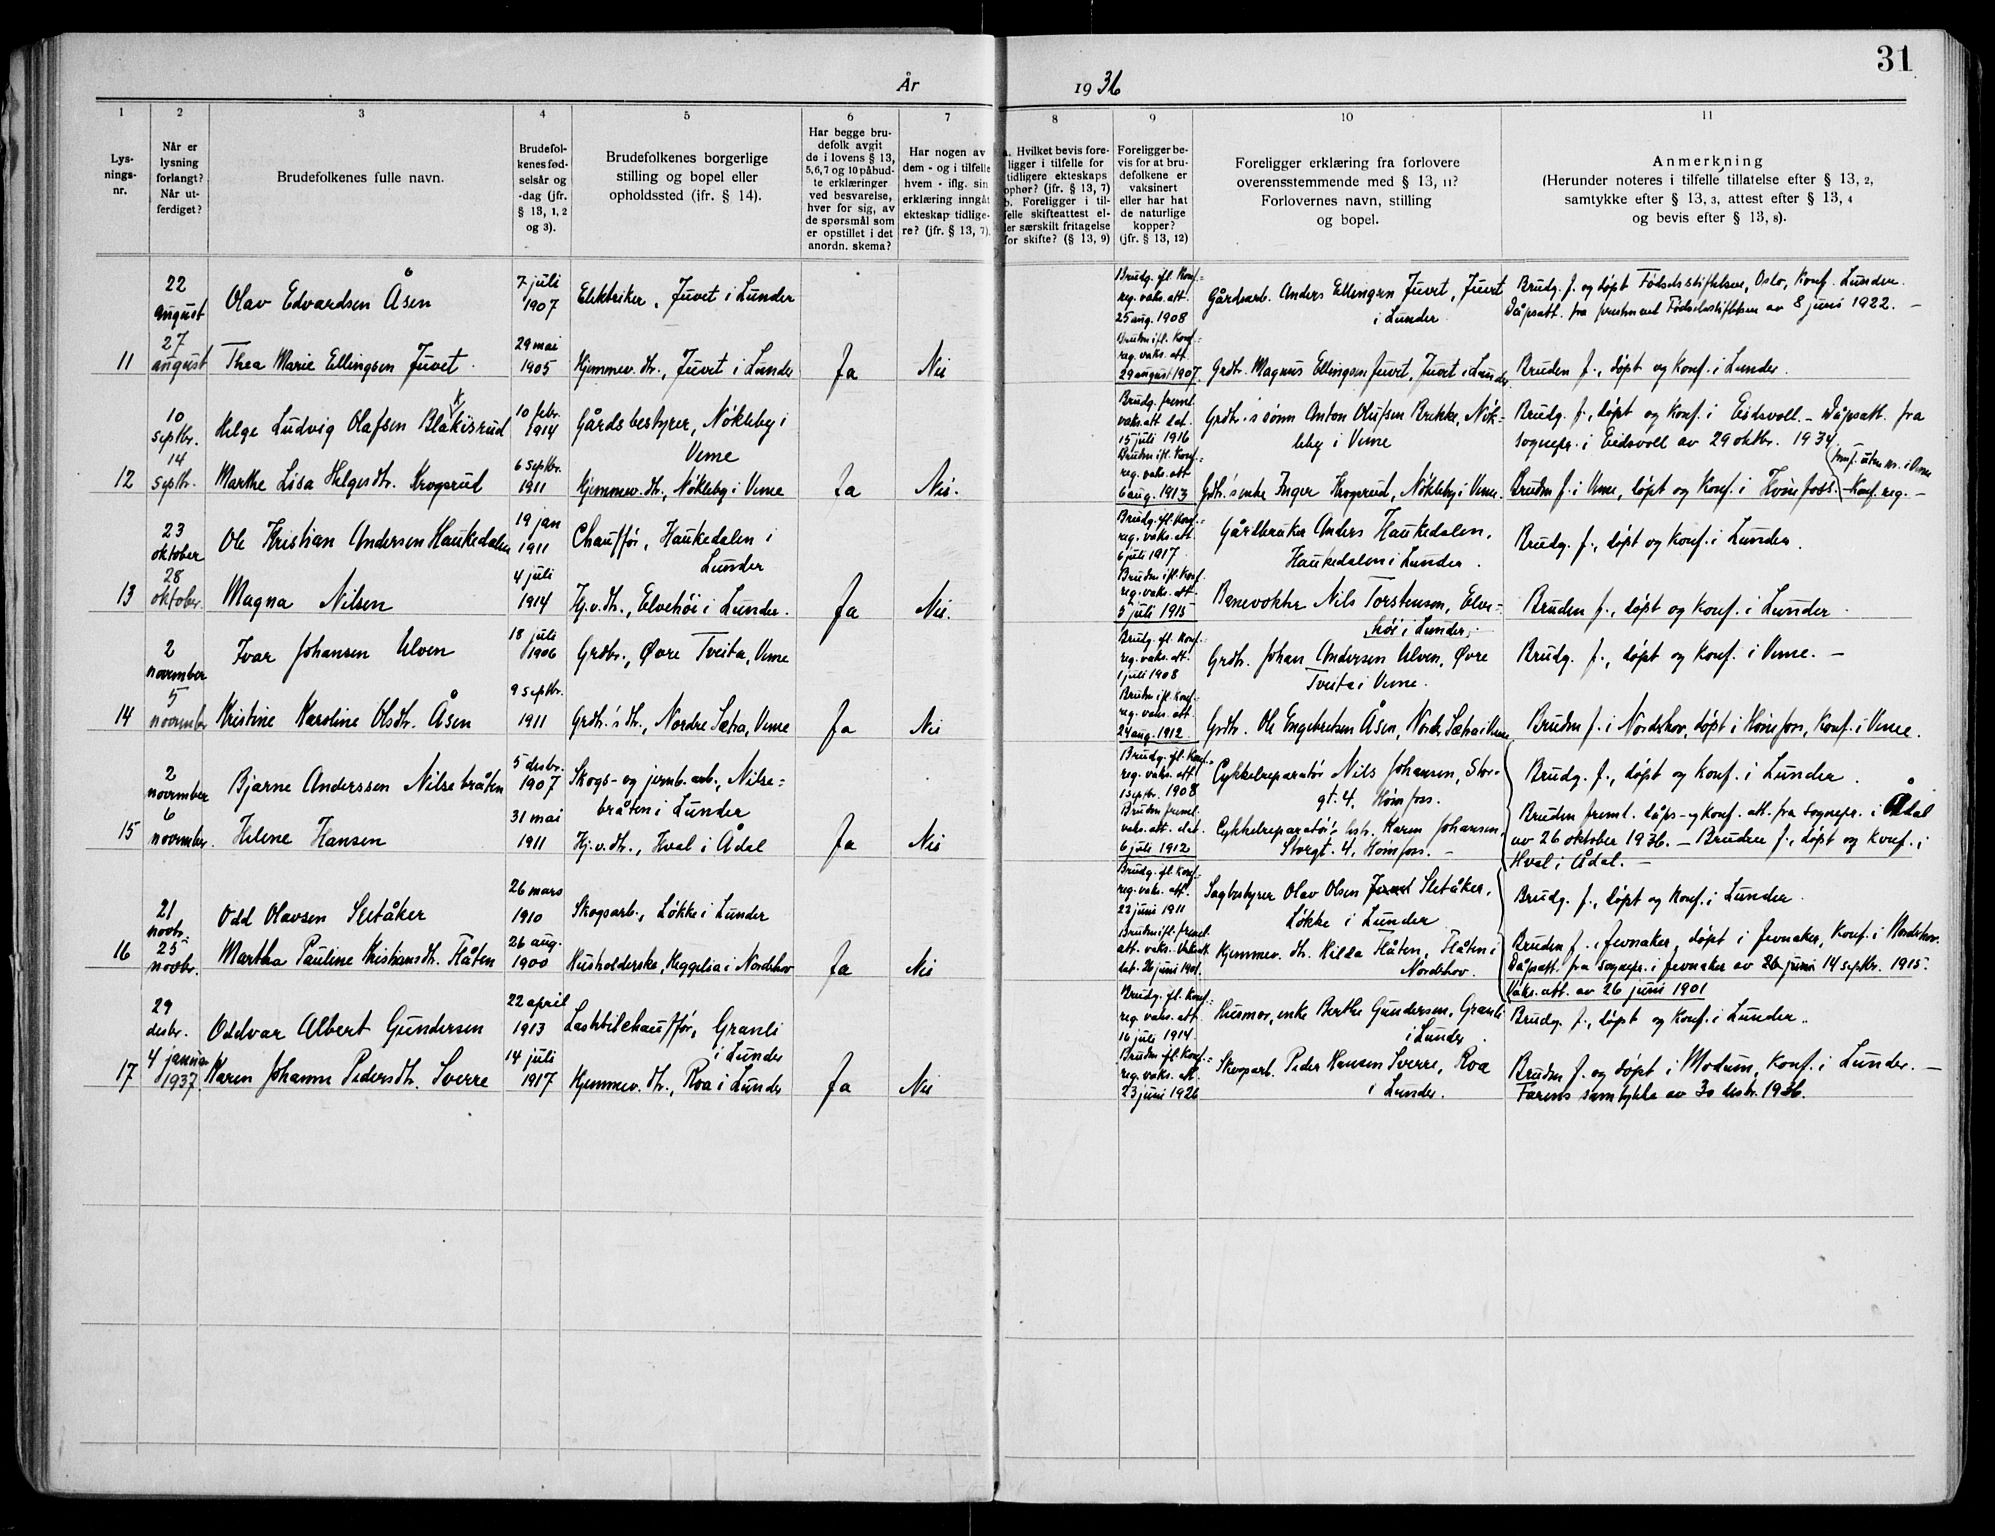 31
År 1936
1 2 3 4 5 6 7 8 9 10 11
Lys-
nings-
nr.
Når er
lysning
forlangt?
Når ut-
ferdiget?
Brudefolkenes fulle navn.
Brudefol-
kenes fød-
selsår og
-dag (jfr.
§ 13, 1, 2
og 3).
Brudefolkenes borgerlige
stilling og bopel eller
opholdssted (jfr. § 14).
Har begge bru-
defolk avgit
de i lovens § 13,
5,6,7 og 10 påbud-
te erklæringer
ved besvarelse,
hver for sig, av
de spørsmål som
er opstillet i det
anordn. skema?
Har nogen av
dem - og i tilfelle
hvem - iflg. sin
erklæring inngåt
ekteskap tidlige-
re? (jfr. § 13, 7).
a. Hvilket bevis fore-
ligger i tilfelle for
tidligere ekteskaps
ophør? (jfr. § 13, 7)
b. Foreligger i til-
felle skifteattest el-
ler særskilt fritagelse
for skifte? (§ 13, 9)
Foreligger be-
vis for at bru-
defolkene er
vaksinert
eller har hat
de naturlige
kopper?
(jfr. § 13, 12)
Foreligger erklæring fra forlovere
overensstemmende med § 13, 11?
Forlovernes navn, stilling
og bopel.
Anmerkning
(Herunder noteres i tilfelle tillatelse efter § 13, 2,
samtykke efter § 13, 3, attest efter § 13, 4
og bevis efter § 13, 8).
22
august
Olav Edvardsen Åsen
7 juli
1907
Elektriker, Juvet i Lunder
Brudg. ifl. Konf=
reg. vaks. att.
25 aug. 1908
Gårdsarb. Anders Ellingsen Juvet, Juvet
i Lunder
Brudg. f. og døpt Fødselsstiftelsen, Oslo, Konf. Lunder.
Dåpsatt. fra prest ved Fødselsstiftelsen av 8 juni 1922. -
11
27
august
Thea Marie Ellingsen Juvet
29 mai
1905
Hjemmev. dtr., Juvet i Lunder
Ja
Nei
Bruden ifl. Konf=
reg. vaks. att.
29 august 1907.
Grdbr. Magnus Ellingsen Juvet, Juvet i Lunder
Bruden f., døpt og Konf. i Lunder.
10
septbr.
Helge Ludvig Olafsen Blakisrud
k
10 febr.
1914
Gårdsbestyrer, Nøkleby i
Veme
Brudg. freml.
vaks. att. dat.
15 juli 1916
Grdbr.'s sønn Anton Olufsen Brekke, Nøk-
leby i Veme
Brudg. f., døpt og Konf. i Eidsvoll. - Dåpsatt. fra
sognepr. i Eidsvoll av 29 oktbr. 1934.
12
14
septbr.
Marthe Lisa Helgesdtr. Krogsrud
6 septbr.
1911
Hjemmev. dtr., Nøkleby i Veme
Ja
Nei.
Bruden ifl. Konf=
reg. vaks. att.
6 aug. 1913
Grdbr.'s enke Inger Krogsrud, Nøkleby i Veme.
Bruden f. i Veme, døpt og Konf. i Hønefoss. - Konf. reg. -
23
oktober
Ole Kristian Andersen Haukedalen
19 jan
1911
Chauffør, Haukedalen i
Lunder
Brudg. ifl. Konf.=
reg. vaks. att.
6 juli 1917
Gårdbruker Anders Haukedalen,
Haukedalen i Lunder.
Brudg. f., døpt og Konf. i Lunder.
13
28
oktober.
Magna Nilsen
4 juli
1914
Hj.v.dtr., Elvehøi i Lunder.
Ja
Nei.
Bruden ifl. Konf.
reg. vaks. att.
5 juli 1915
Banevokter Nils Torstensen, Elve=
høi i Lunder.
Bruden f., døpt og Konf. i Lunder.
2
november
Ivar Johansen Ulven
18 juli
1906
Grdbr., Øvre Tveita, Veme
Brudg. ifl. Konf.=
reg. vaks. att.
1 juli 1908
Grdbr. Johan Andersen Ulven, Øvre
Tveita i Veme.
Brudg. f., døpt og Konf. i Veme. -
14
5
november
Kristine Karoline Olsdtr. Åsen
9 septbr.
1911
Grdbr.'s dtr., Nordre Sætra, Veme
Ja
Nei
Bruden ifl. Konf.
reg. vaks. att.
24 aug. 1912
Grdbr. Ole Engebretsen Åsen, Nordre Sætra i Veme
Bruden f. i Norderhov, døpt i Hønefoss, Konf. i Veme.
2
november
Bjarne Anderssen Nilsebråten
5 desbr.
1907
Skogs- og jernb. arb., Nilse=
bråten i Lunder
Brudg. ifl. Konf=
reg. vaks. att.
1 septbr. 1908
Cykkelreparatør Nils Johansen, Stor-
gt. 4, Hønefoss.
Brudg. f., døpt og Konf. i Lunder.
15
6
november.
Helene Hansen
31 mai
1911
Hj.v.dtr., Hval i Ådal
Ja
Nei
Bruden freml.
vaks. att. dat.
6 juli 1912
Cykkelreparatør's hstr. Karen Johansen,
Storgt. 4, Hønefoss. -
Bruden freml. dåps- og Konf. att. fra sognepr. i Ådal
av 26 oktober 1936. - Bruden f., døpt og Konf. i
Hval i Ådal. -
21
novbr.
Odd Olavsen Sletåker
26 mars
1910
Skogsarb., Løkke i Lunder
Brudg. ifl. Konf=
reg. vaks. att.
22 juni 1911
Sagbestyrer Olav Olsen Sletåker,
Løkke i Lunder
Brudg. f., døpt og Konf. i Lunder.
16
25
novbr.
Martha Pauline Kristiansdtr. Flåten
26 aug.
1900
Husholderske, Heggelia i Norderhov
Ja
Nei
Bruden ifl. freml.
att. vaks.
dat. 26 juni 1901.
Hjemmev. dtr. Hilda Flåten, Flåten i
Norderhov.
Bruden f. i Jevnaker, døpt i Jevnaker, Konf. i Norderhov.
Dåpsatt. fra sognepr. i Jevnaker av 26 juni 14 septbr. 1915.
Vaks. att. av 26 juni 1901
29
desbr.
Oddvar Albert Gundersen
22 april
1913
Lastebilchauffør, Granli
i Lunder
Brudg. ifl. Konf.=
reg. vaks. att.
16 juli 1914.
Husmor, enke Berthe Gundersen, Granli
i Lunder.
Brudg. f., døpt og Konf. i Lunder.
17
4 januar
1937.
Karen Johanne Pedersdtr. Sverre
14 juli
1917
Hjemmev. dtr., Roa i Lunder
Ja
Nei
Bruden ifl. Konf.=
reg. vaks. att.
23 juni 1926
Skogsarb. Peder Hansen Sverre, Roa
i Lunder.
Bruden f. og døpt i Modum, Konf. i Lunder. -
Farens samtykke av 30 desbr. 1936.